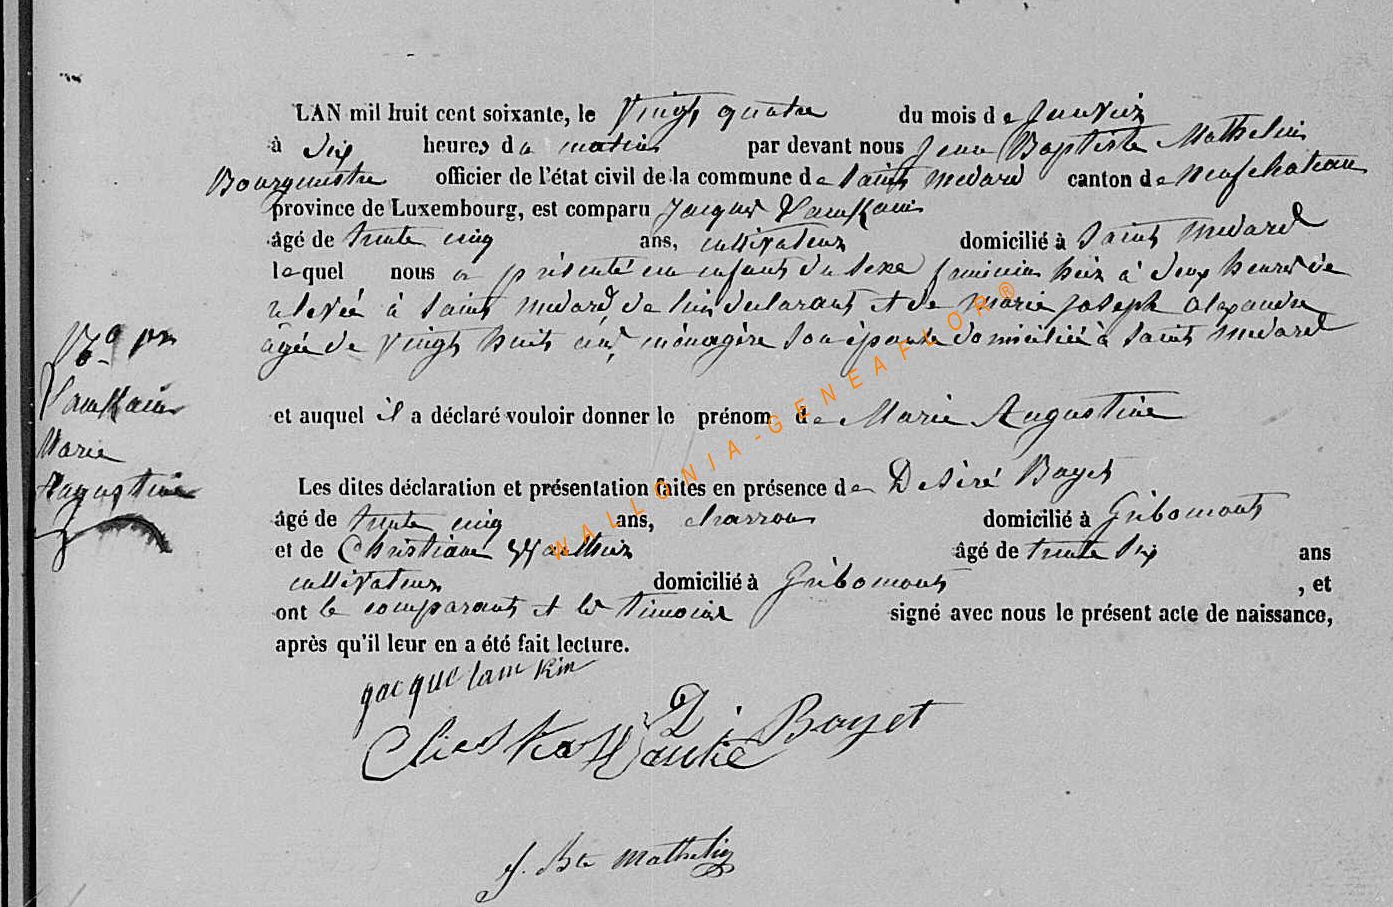 L'AN mil huit cent soixante, le vingt quatre du mois de Janvier
à dix heures du matin par devant nous Jean Baptiste Mathelin
Bourgmestre officier de l'état civil de la commune de Saint Medard canton de Neufchateau
province de Luxembourg, est comparu Jacques Lamkain
âgé de trente cinq ans, cultivateur domicilié à Saint Medard
lequel nous a présenté un enfant du sexe féminin hier à deux heures de
relevée à Saint Medard de lui déclarant et de Marie Joseph Alexandre
agée de vingt huit ans ménagère son épouse domiciliée à Saint Medard
et auquel il a déclaré vouloir donner le prénom de Marie Augustine
Les dites déclaration et présentation faites en présence de Désiré Bayet
âgé de trente cinq ans, charron domicilié à Gribomont
et de Christian âgé de trente six ans
cultivateur domicilié à Gribomont , et
ont le comparant et les témoins signé avec nous le présent acte de naissance,
après qu'il leur en a été fait lecture.
Lamkain
Marie
Augustine
jacque lamkin
D. Bayet
J. Bte Mathelin
WALLONIA-GENEAFLOR®